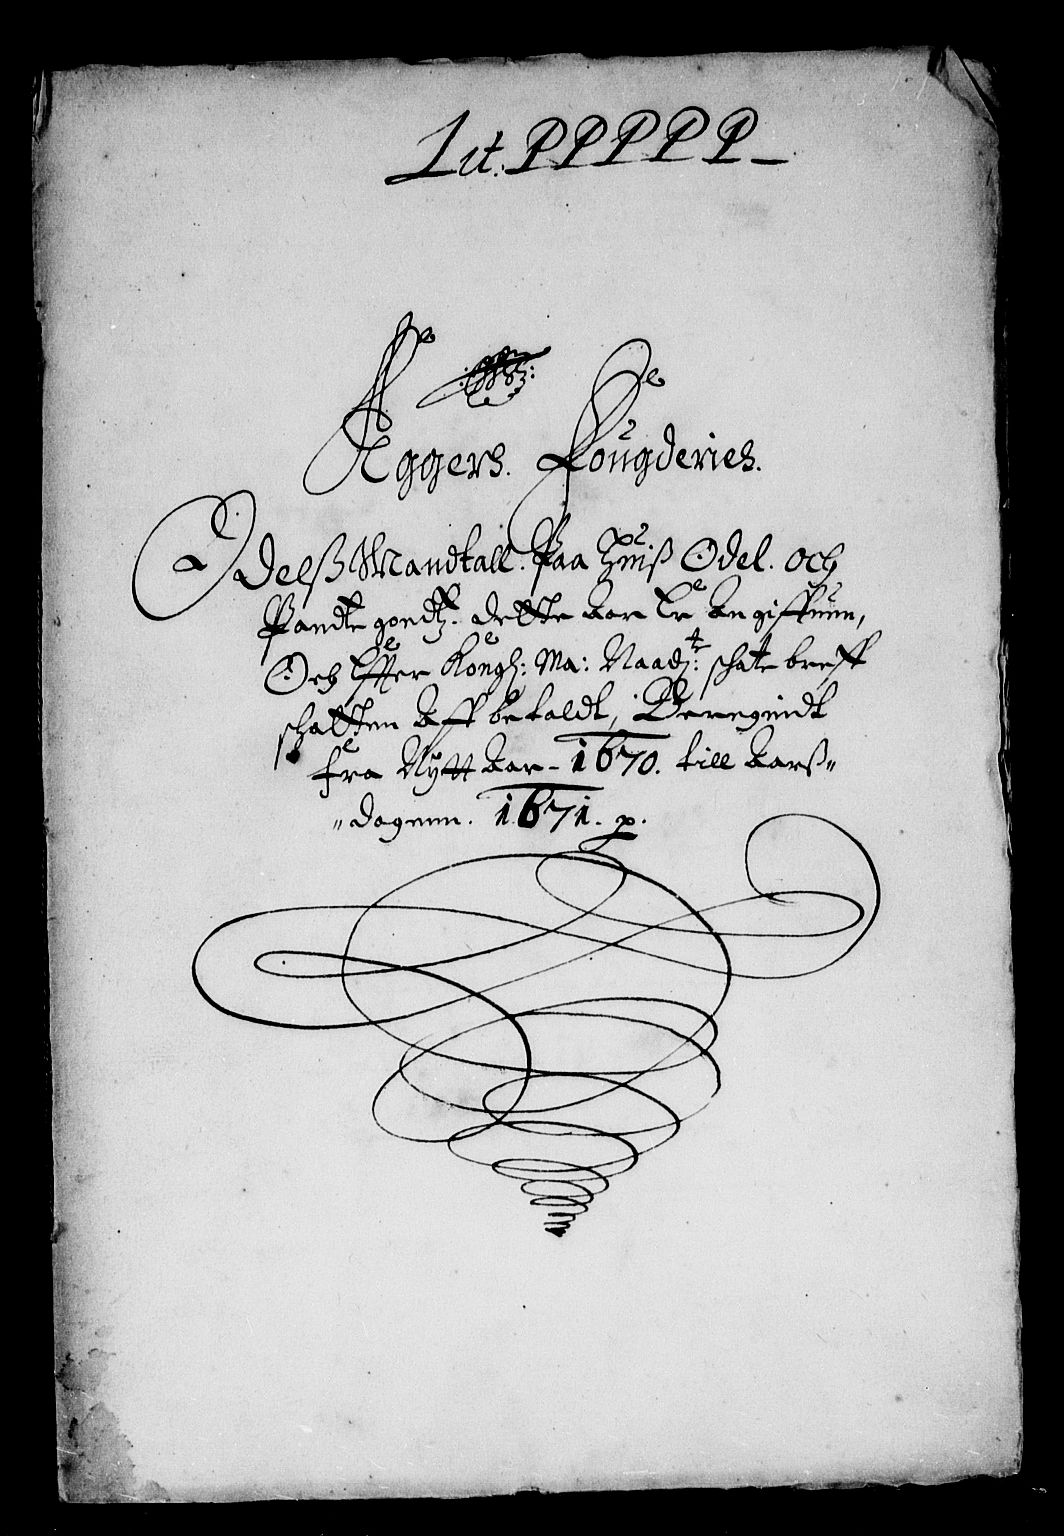 Lit. PPPPP
Aggers. Fougderies.
Odelß Mandtall. Paa huiß Odel. och
Pandte godtz. dette Aar Er Angiffuen,
Och Effter Kongl: Ma: Naadj:te schate breff
schatten Aff betaldt, Beregnidt
fra Nytt Aar - 1670. till Aarß„
„dagenn. 1671. p.